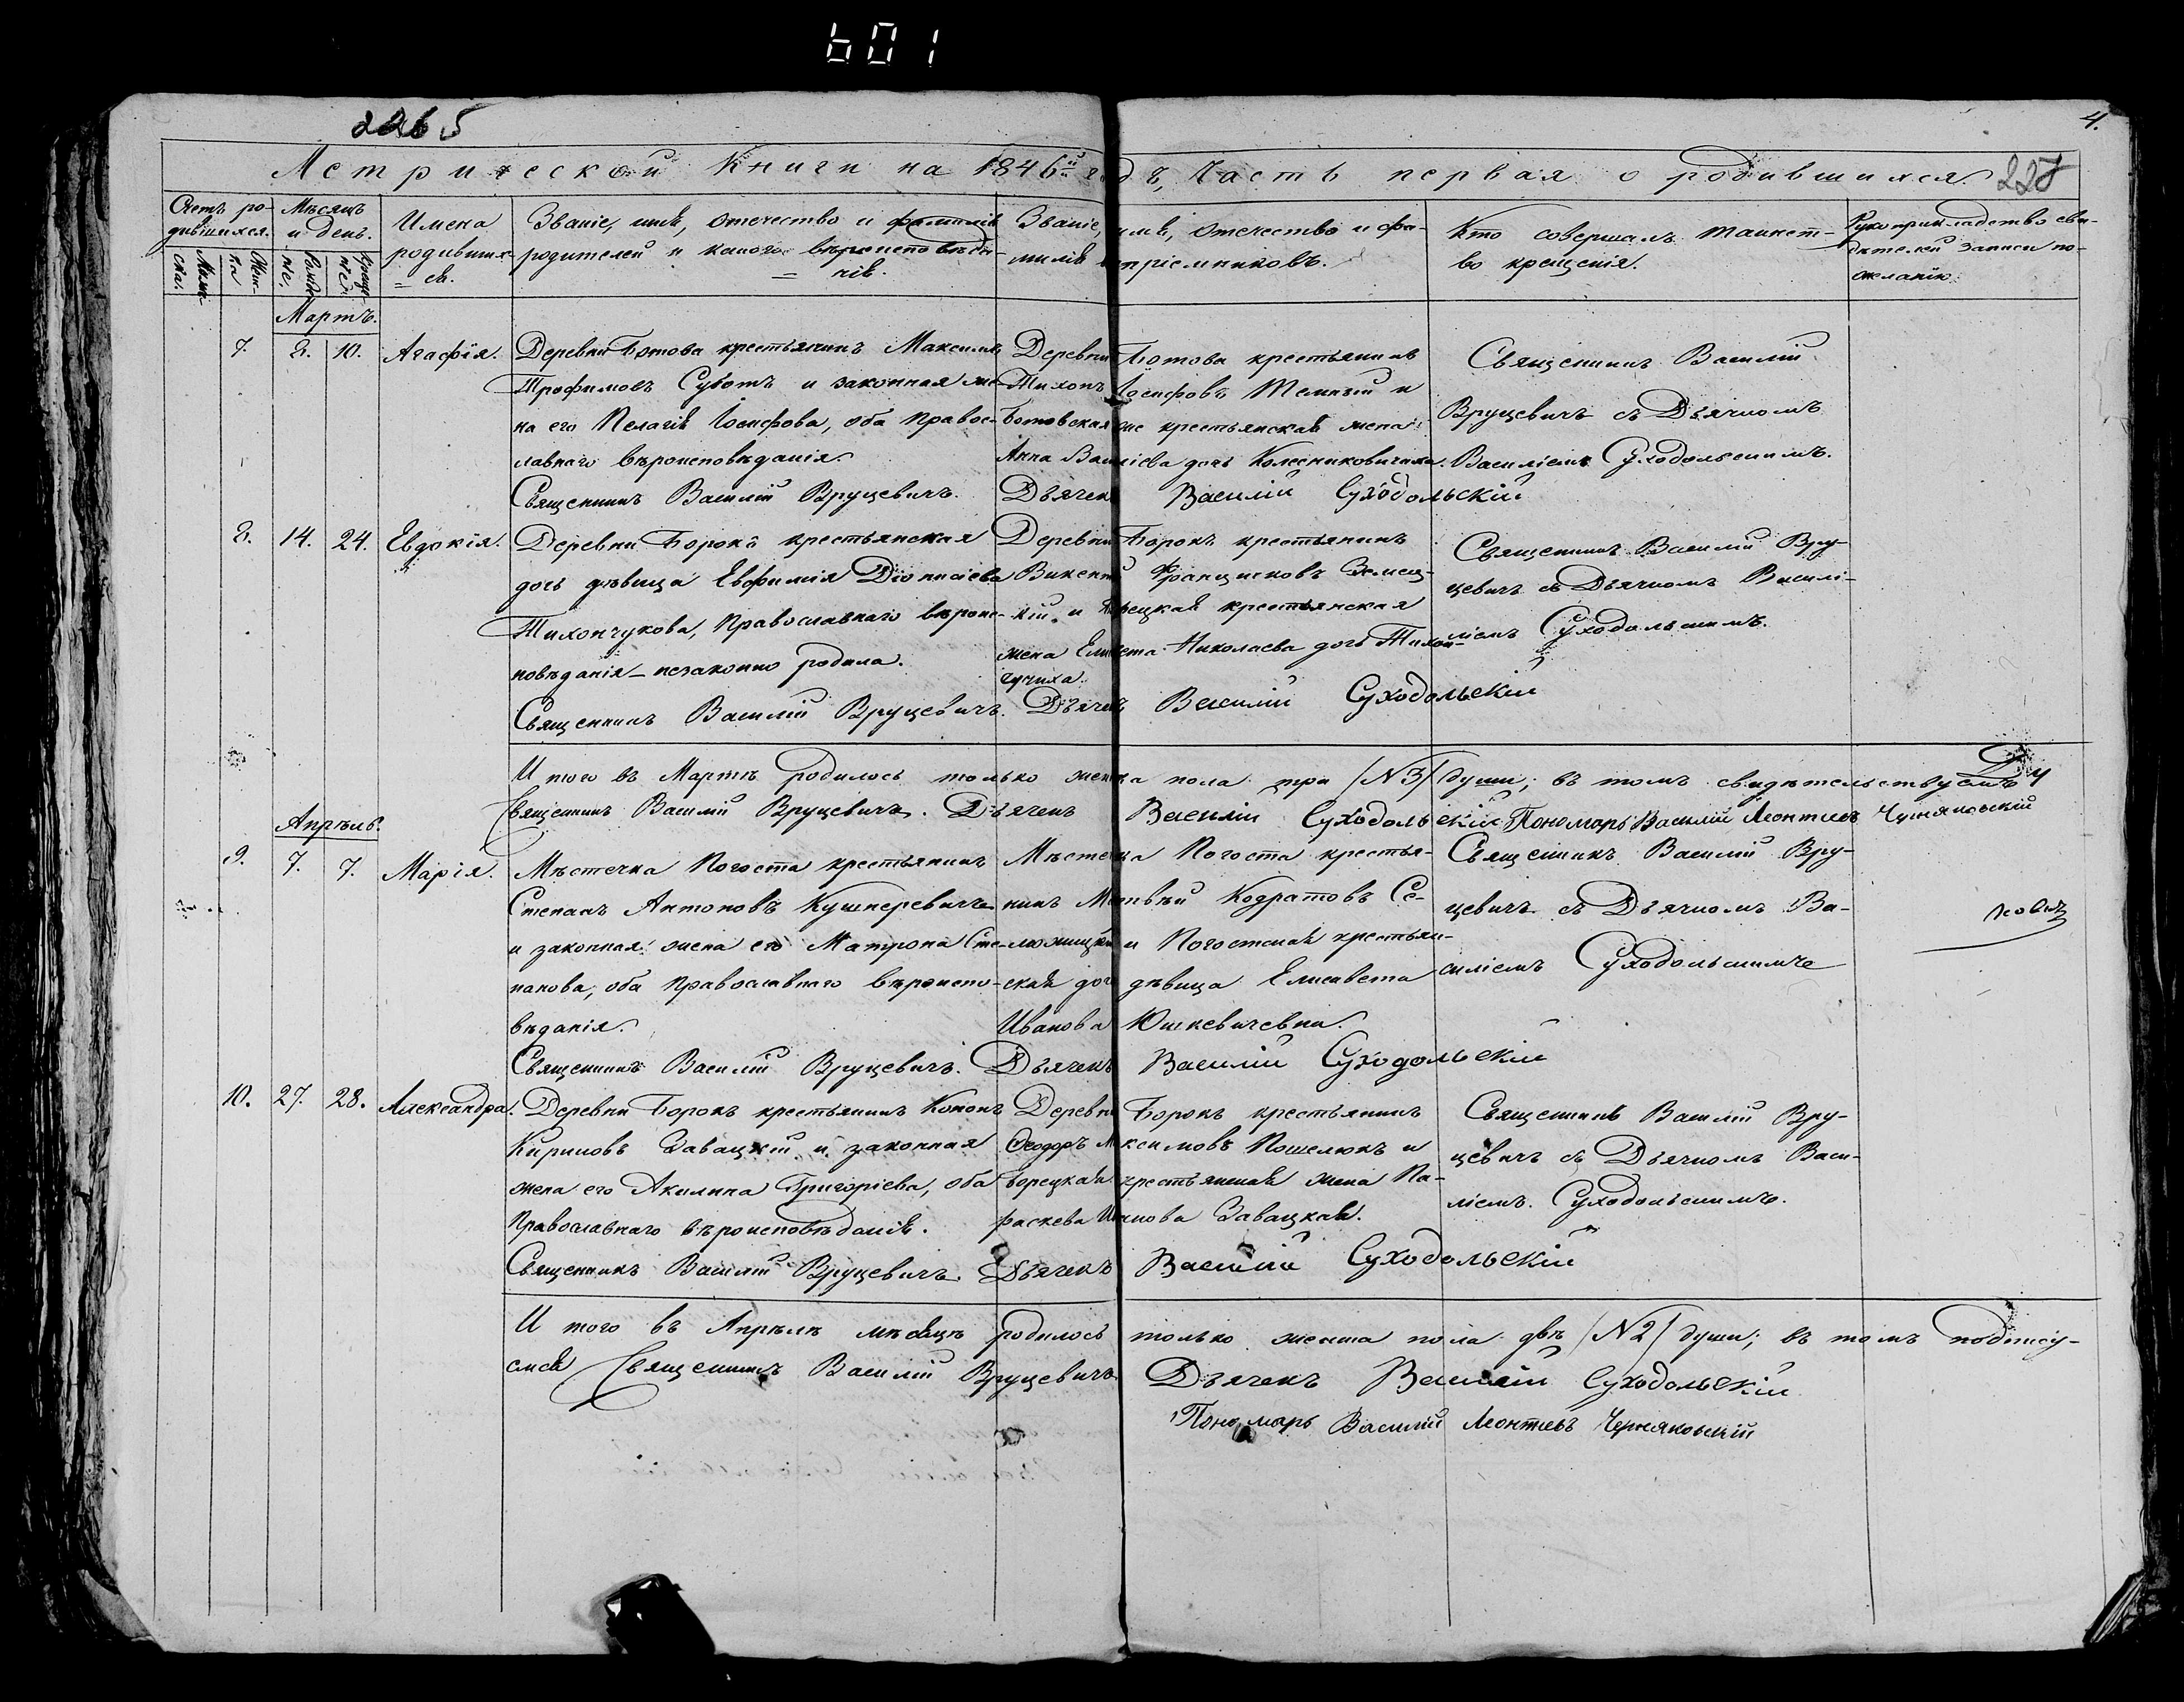 601
2265
4.
Метрической Книги на 1846й годъ, Часть первая о родившихся.
227
Счетъ ро-
дившихся.
Мѣсяцъ
и день.
Имена
родивших-
ся.
Званіе, имя, отечество и фамилія
родителей и какого вѣроисповѣда-
нія.
Званіе, имя, отечество и фа-
милія воспріемниковъ.
Кто совершалъ таинст-
во крещенія.
Рукоприкладство сви-
дѣтелей записи по-
желанію.
Мартъ.
7.
8.
10.
Агафія.
Деревни Ботова крестьянинъ Максимъ
Трофимовъ Суботъ и законная же-
на его Пелагія Іосифова, оба Правос-
лавнаго вѣроисповѣданія.
Священникъ Василій Вруцевичъ.
Деревни Ботова крестьянинъ
Тихонъ Іосифовъ Темный и
Ботовская же крестьянская жена
Анна Василіева дочь Колесниковичиха.
Дьячекъ Василій Суходольскій
Священникъ Василій
Вруцевичъ съ Дьячкомъ
Василіемъ Суходольскимъ.
8.
14.
24.
Евдокія.
Деревни Борокъ крестьянская
дочь дѣвица Евфимія Діонисіева
Тихончукова, Православнаго вѣроис-
повѣданія – незаконно родила.
Священникъ Василій Вруцевичъ.
Деревни Борокъ крестьянинъ
Викентій Францисковъ Земец-
кій и Борецкая крестьянская
жена Елисавета Николаева дочь Тихон-
чучиха.
Дьячекъ Василій Суходольскій
Священникъ Василій Вру-
цевичъ съ Дьячкомъ Васілі-
ліемъ Суходольскимъ.
И того въ Мартѣ родилось только женска пола три /N 3/ души; въ томъ свидѣтельствуемъ
Священникъ Василій Вруцевичъ. Дьячекъ Василій Суходольскій Пономарь Василій Леонтіевъ Черняковскій
Апрѣль.
9.
7.
7.
Марія.
Мѣстечка Погоста крестьянинъ
Степанъ Антоновъ Кушнеревичъ
и законная жена его Матрона Сте-
панова, оба Православнаго вѣроиспо-
вѣданія.
Священникъ Василій Вруцевичъ.
Мѣстечка Погоста крестья-
нинъ Матвѣй Кодратовъ Се-
люжицкій и Погостская крестьян-
ская дочь дѣвица Елисавета
Иванова Юшкевичевна.
Дьячекъ Василій Суходольскій
Священникъ Василій Вру-
цевичъ съ Дьячкомъ Ва-
силіемъ Суходольскимъ
10.
27.
28.
Александра.
Деревни Борокъ крестьянинъ Кононъ
Кириловъ Завацкій и законная
жена его Акилина Григоріева, оба
Православнаго вѣроисповѣданія.
Священникъ Василій Вруцевичъ.
Деревни Борокъ крестьянинъ
Ѳеодоръ Максимовъ Пошелюкъ и
Борецкая крестьянская жена Па-
раскева Иванова Завацкая.
Дьячекъ Василій Суходольскій
Священникъ Василій Вру-
цевичъ съ Дьячкомъ Васи-
ліемъ Суходольскимъ.
И того въ Апрѣлѣ мѣсяцѣ родилось только женска пола двѣ /N 2/ души; въ томъ подпису-
емся Священникъ Василій Вруцевичъ Дьячекъ Василій Суходольскій
Пономарь Василій Леонтіевъ Черняковскій